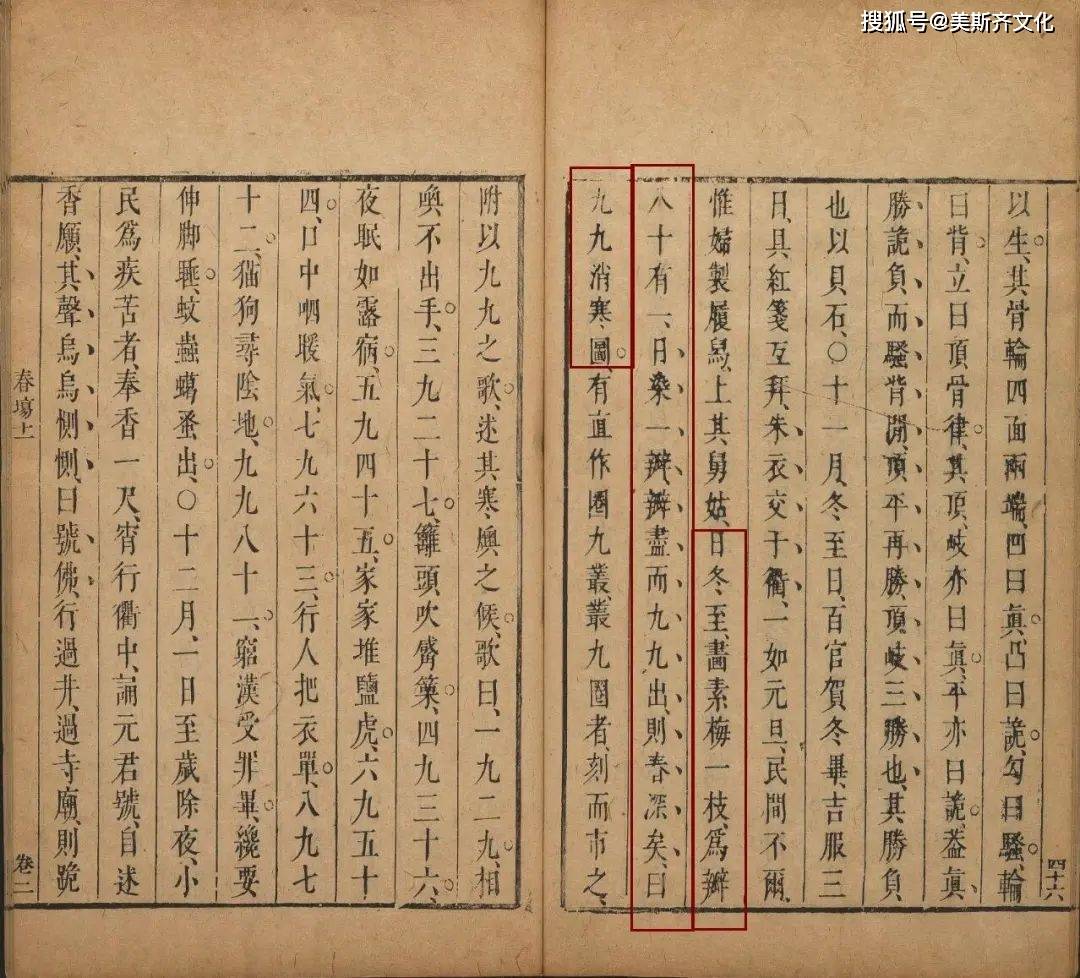 搜狐号@美斯齐文化
四十六
以生、其骨輪四面兩端、凹曰眞、凸曰詭、勾曰騷、輪
曰背、立曰頂骨律、其頂岐亦曰眞、平亦曰詭、葢眞、
勝詭負、而騷背閒、頂平再勝、頂岐三勝也、其勝負
也以貝石、○十一月、冬至日、百官賀冬畢、吉服三
日、具紅箋互拜、朱衣交于衢、一如元旦、民間不爾、
惟婦製履舄、上其舅姑、日冬至、畫素梅一枝、爲瓣
八十有一、日染一瓣、瓣盡而九九出、則春深矣、曰
九九消寒圖。有直作圈九叢、叢九圈者、刻而市之、
附以九九之歌、述其寒燠之候。歌曰、一九二九、相
喚不出手、三九二十七、籬頭吹觱篥、四九三十六、
夜眠如露宿、五九四十五、家家堆鹽虎、六九五十
四、口中呬暖氣、七九六十三、行人把衣單、八九七
十二、猫狗尋陰地、九九八十一、窮漢受罪畢、纔要
伸脚睡、蚊蟲蟣蚤出、○十二月、一日至歲除夜、小
民爲疾苦者、奉香一尺、宵行衢中、誦元君號、自述
香願、其聲烏烏惻惻、曰號佛、行過井、過寺廟、則跪
春塲上
卷二